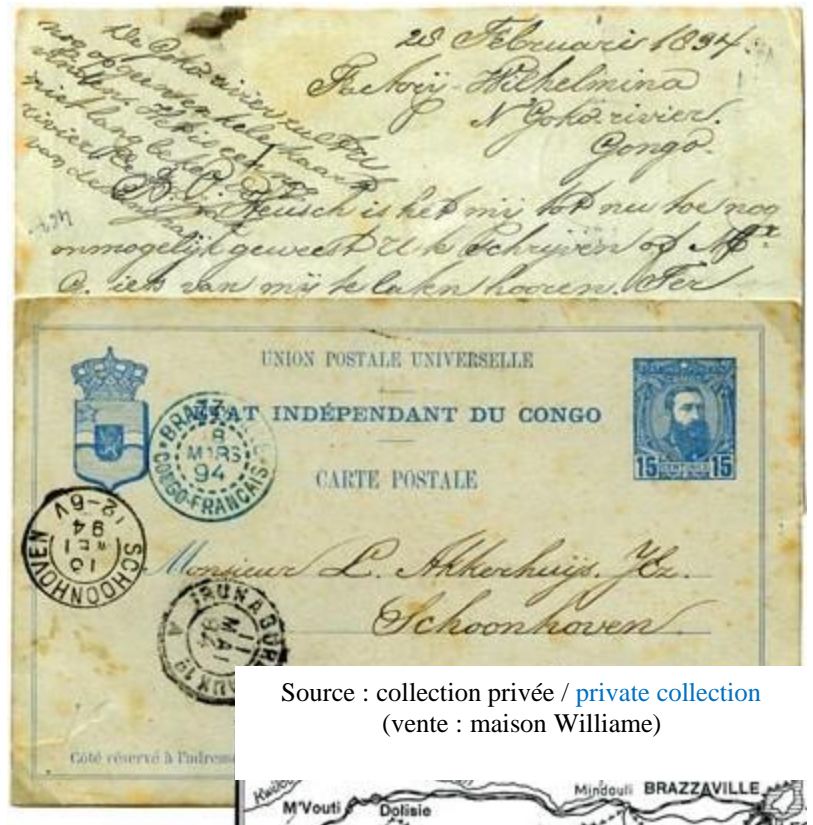 28 Februarie 1894.
Factory Wilhelmina
N'Goko rivier.
Congo.
De Goko rivier zult U
nog op geen enkele kaart
vinden. Het is een nog
niet lang
rivier
van de
is het mij tot nu toe nog
onmogelijk geweest U te schrijven of Mr.
C. iets van mij te laten hooren. Ter
UNION POSTALE UNIVERSELLE
ETAT INDÉPENDANT DU CONGO
CARTE POSTALE
15 15
BRAZZAVILLE
8
MARS
94
CONGO-FRANCAIS
SCHOONHOVEN
94
12-6V
Monsieur L. Akkerhuijs. Jz.
Schoonhoven.
IRUN A BORDEAUX 1º
11
MAI
94
A
Côté réservé à l'adresse
Source : collection privée / private collection
(vente : maison Williame)
M'Vouti Dolisie Mindouli BRAZZAVILLE